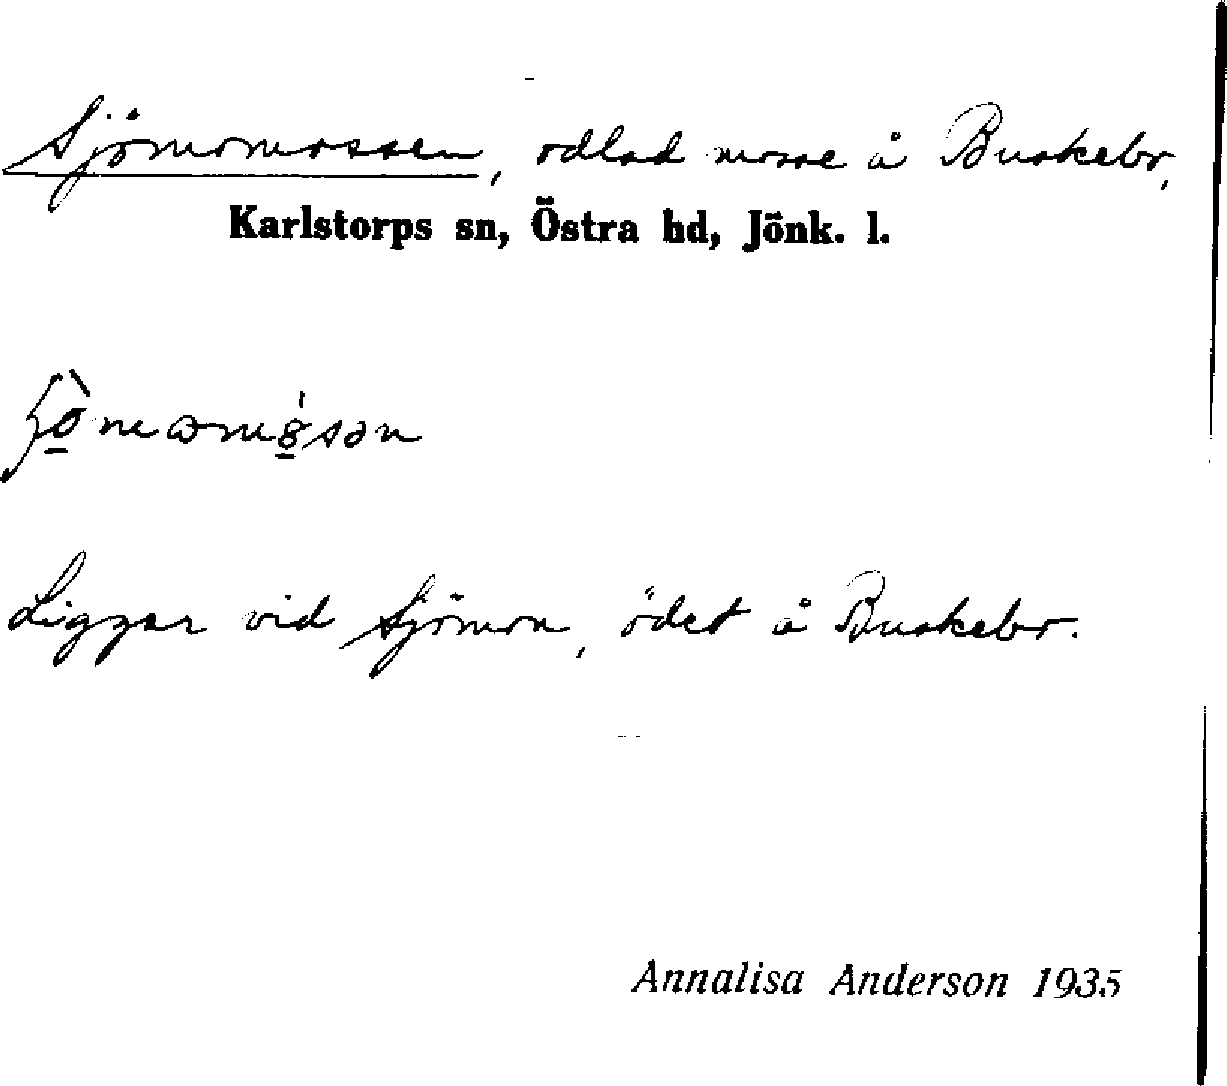 Sjömomossen, odlad mosse å Buskebo,
Karlstorps sn, Östra hd, Jönk. l.
Ligger vid Sjömon, ödet å Buskebo.
Annalisa Anderson 1935